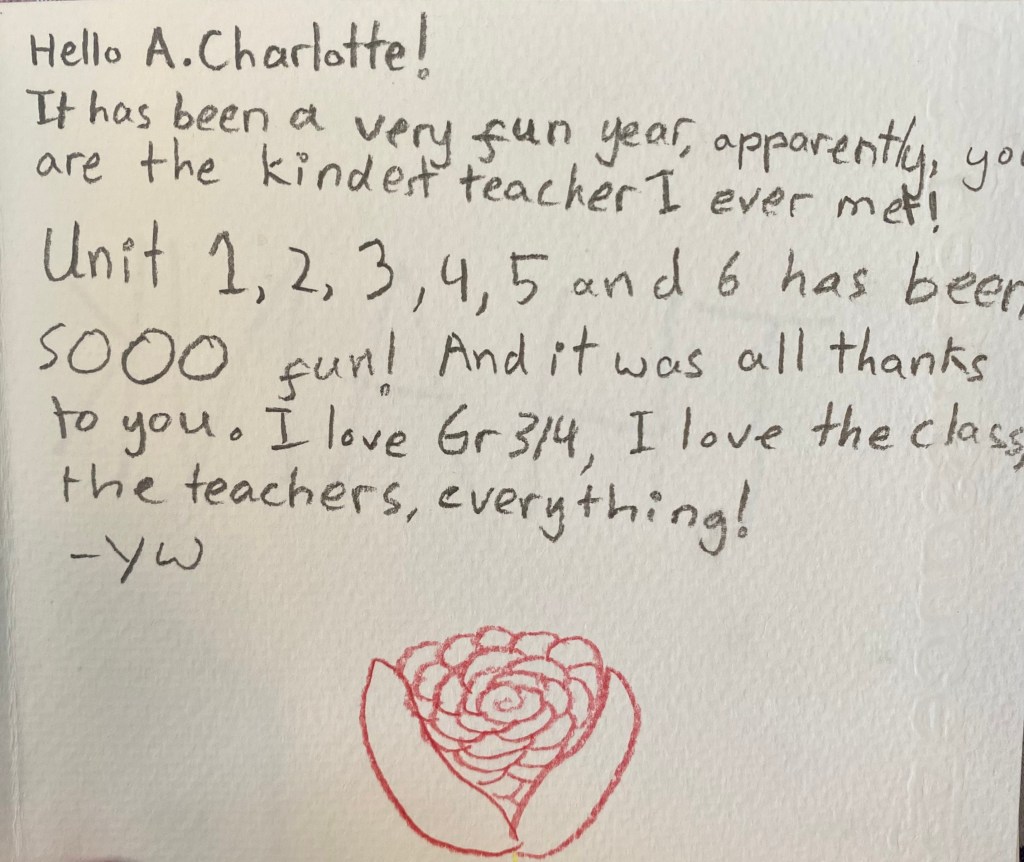 Hello A. Charlotte!
It has been a very fun year, apparently, you
are the kindest teacher I ever met!
Unit 1, 2, 3, 4, 5 and 6 has been
SOOO fun! And it was all thanks
to you. I love Gr 3/4, I love the class,
the teachers, everything!
-YW